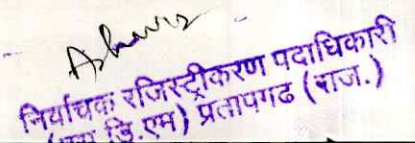 निर्वाचक रजिस्ट्रीकरण पदाधिकारी
डि.एम) प्रतापगढ (राज.)